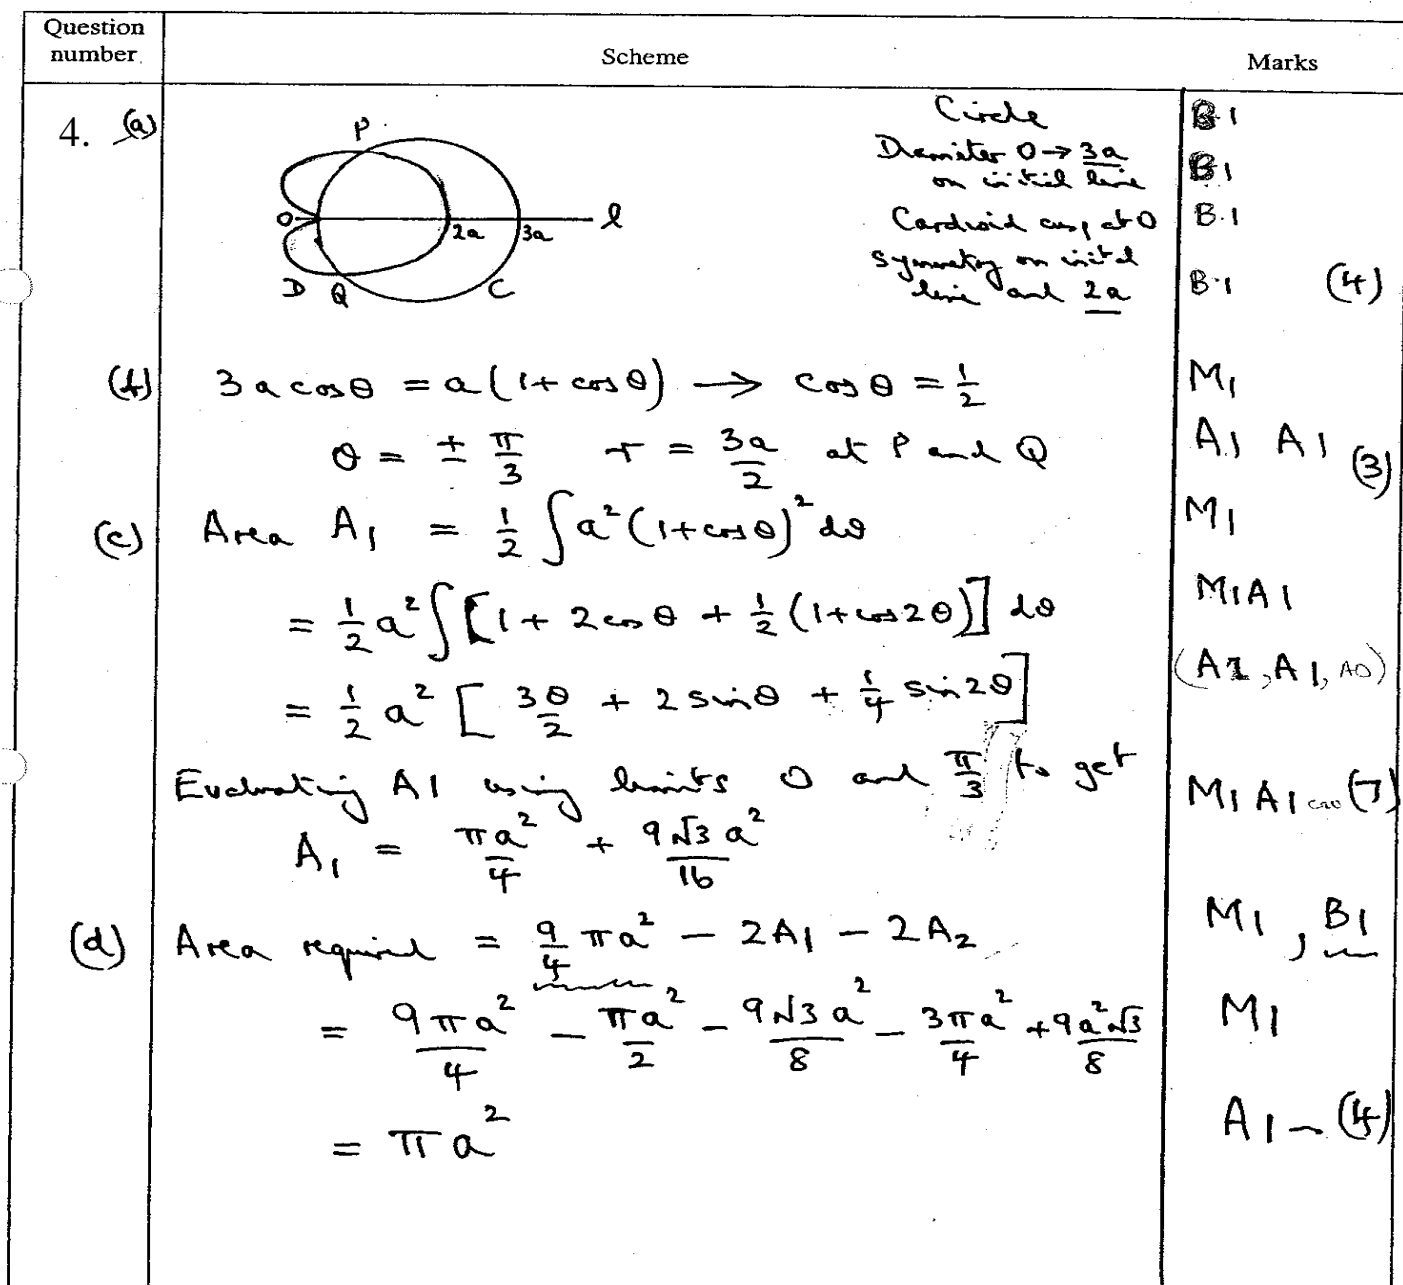 Question number
Scheme
Marks
4. (a)
P
O
2a
3a
l
D
Q
C
Circle B1
Diameter O → 3a
on initial line B1
Cardioid cusp at O B1
symmetry on initial
line and 2a B1 (4)
(b) 3a cos θ = a(1 + cos θ) → cos θ = 1/2 M1
θ = ± π/3 r = 3a/2 at P and Q A1 A1 (3)
(c) Area A₁ = 1/2 ∫ a²(1+cos θ)² dθ M1
= 1/2 a² ∫ [1 + 2 cos θ + 1/2 (1+cos 2θ)] dθ M1A1
= 1/2 a² [ 3θ/2 + 2 sin θ + 1/4 sin 2θ] (A1, A1, A0)
Evaluating A1 using limits 0 and π/3 to get M1 A1 cao (7)
A₁ = πa²/4 + 9√3 a²/16
(d) Area required = 9/4 πa² − 2A₁ − 2A₂ M1, B1
= 9πa²/4 − πa²/2 − 9√3 a²/8 − 3πa²/4 + 9a²√3/8 M1
= πa² A1 (4)